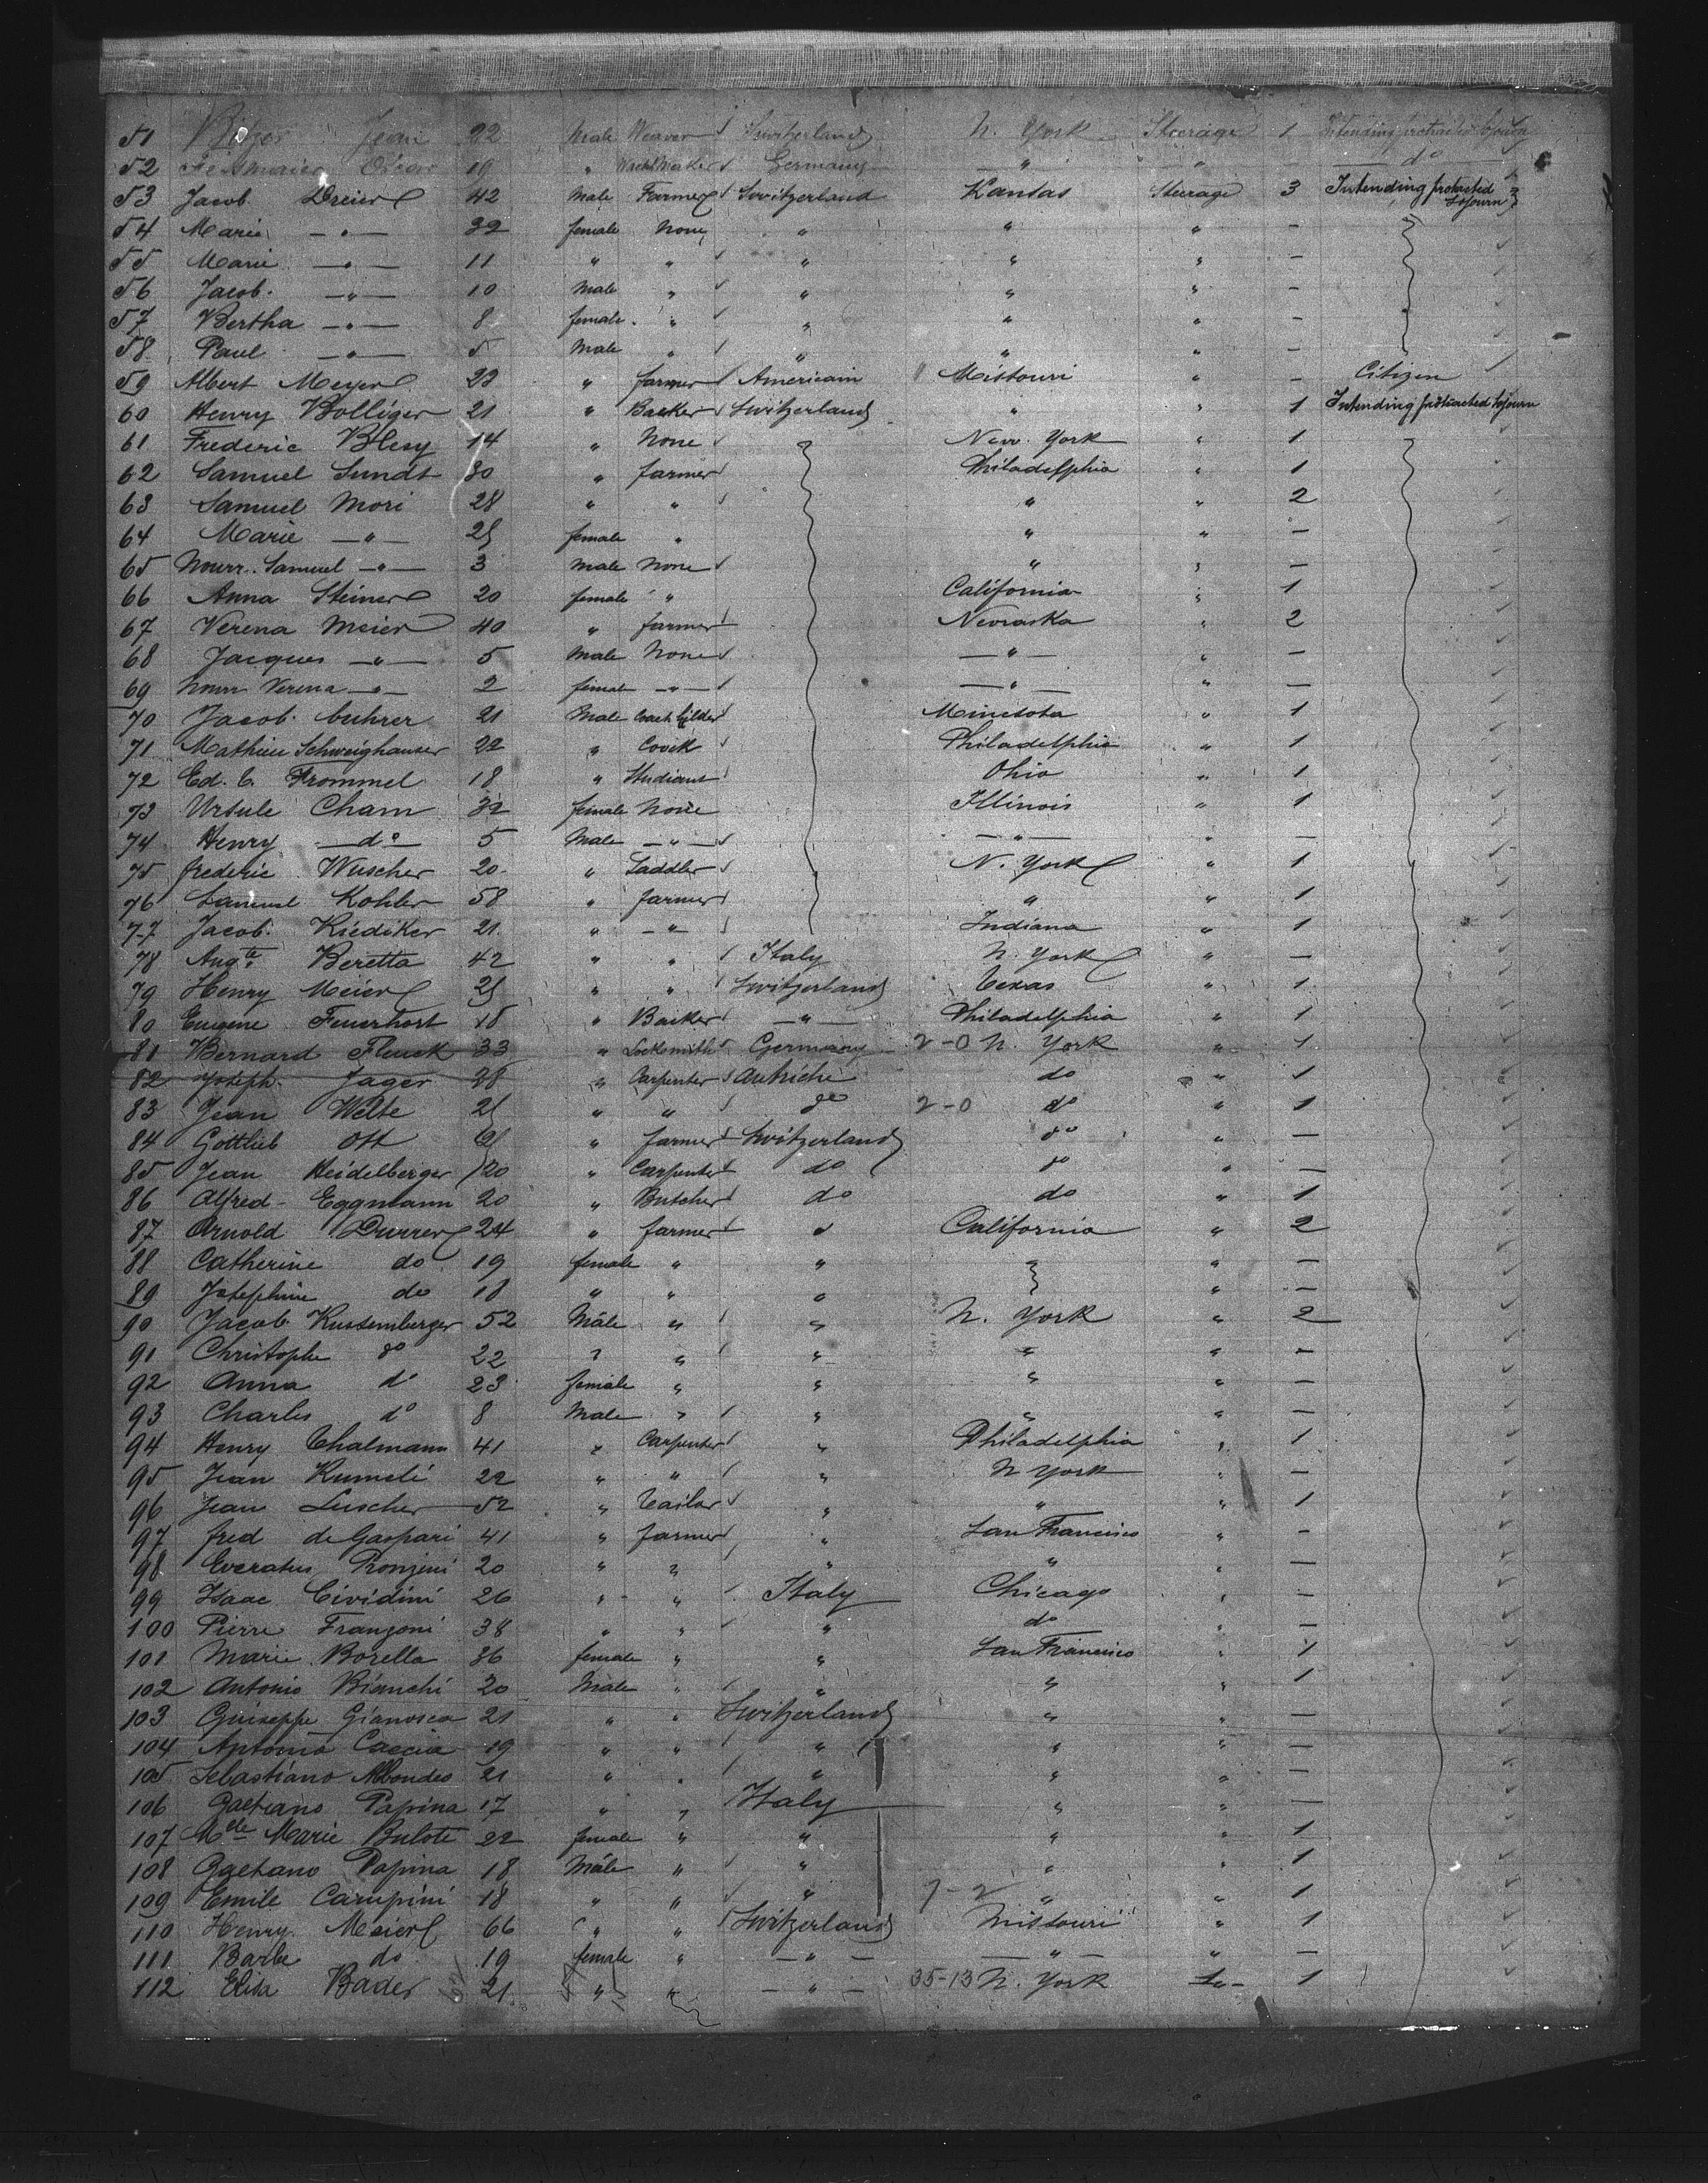 51 Jean 22 Male Weaver Switzerland N. York Steerage 1 Intending protracted Sojourn
52 Oscar 19 " Germany " " - do
53 Jacob Dreier 42 Male Farmer Switzerland Kansas Steerage 3 Intending protracted Sojourn
54 Marie -"- 32 female None " " " -
55 Marie -"- 11 " " " " " -
56 Jacob. -"- 10 Male " " " " -
57 Bertha -"- 8 female " " " " -
58 Paul -"- 5 Male " " " " -
59 Albert Meyer 23 " farmer Americain Missouri " - Citizen
60 Henry Bolliger 21 " Backer Switzerland " " 1 Intending protracted Sojourn
61 Frederic Blesy 14 " None New. York " 1
62 Samuel Sundt 30 " farmer Philadelphia " 1
63 Samuel Mori 28 " " " " 2
64 Marie -"- 25 female " " " -
65 Nourr. Samuel -"- 3 Male None " " -
66 Anna Steiner 20 female " California " 1
67 Verena Meier 40 " farmer Nevraska " 2
68 Jacques -"- 5 Male None -"- " -
69 Nourr Verena -"- 2 female -"- -"- " -
70 Jacob. buhrer 21 Male Minesota " 1
71 Mathieu Schweighauser 22 " Coock Philadelphia " 1
72 Ed. C. Frommel 18 " Studiant Ohio " 1
73 Ursule Cham 32 female None Illinois " 1
74 Henry -do- 5 Male -"- -"- " -
75 frederic Wuscher 20 " Saddler N. York " 1
76 Samuel Kohler 58 " farmer " " 1
77 Jacob. Riediker 21 " -"- Indiana " 1
78 Augte. Beretta 42 " " Italy N. York " -
79 Henry Meier 25 " " Switzerland Texas " 1
80 Eugene Feuerhort 18 " Backer -"- Philadelphia " 1
81 Bernard Fluck 33 " Locksmith Germany 2-0 N. York " 1
82 Joseph. Jager 28 " Carpenter Autriche do " 1
83 Jean Welte 25 " " do 2-0 do " 1
84 Gottlieb Ott 21 " farmer Switzerland do " -
85 Jean Heidelberger 20 " Carpenter do do " -
86 Alfred Eggmann 20 " Butcher do do " 1
87 Arnold Durrer 24 " farmer " California " 2
88 Catherine do 19 female " " " -
89 Josephine do 18 " " " " -
90 Jacob Kussemberger 52 Male " " N. York " 2
91 Christophe do 22 " " " " " -
92 Anna do 23 female " " " " -
93 Charles do 8 Male " " " " -
94 Henry Thalmann 41 " Carpenter " Philadelphia " 1
95 Jean Kumeli 22 " " " N York " -
96 Jean Luscher 52 " Tailor " " " 1
97 fred de Gaspari 41 " farmer " San Francisco " -
98 Everatus Ronzini 20 " " " " " -
99 Isaac Cividini 26 " " Italy Chicago " -
100 Pierre Franzoni 38 " " " do " -
101 Marie Borella 36 female " " San Francisco " 1
102 Antonio Bianchi 20 Male " " " " 1
103 Guiseppe Gianosca 21 " " Switzerland " " -
104 Antonio Caccia 19 " " " " " -
105 Sebastiano 21 " " " " " -
106 Gaetano Papina 17 " " Italy " " -
107 Mdle Marie Bulote 22 female " " " " 1
108 Gaetano Papina 18 Male " " " " 1
109 Emile Campini 18 " " " 7-2 " " 1
110 Henry Meier 66 " " Switzerland Missouri " 1
111 Barbe do 19 female " -"- -"- " -
112 Elisa Bader 21 " " -"- 35-13 N. York -"- 1